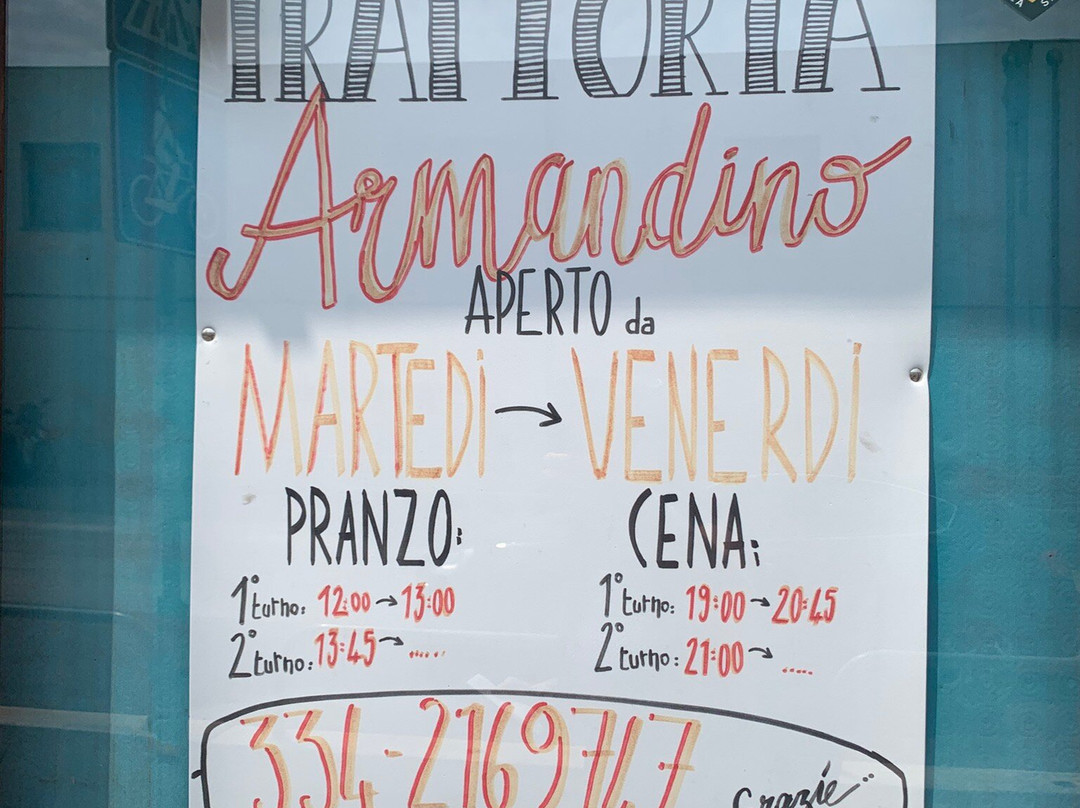 TRATTORIA
Armandino
APERTO da
MARTEDÌ → VENERDÌ
PRANZO:
1° turno: 12:00 → 13:00
2° turno: 13:45 → ......
CENA:
1° turno: 19:00 → 20:45
2° turno: 21:00 → .....
334-2169747
Grazie